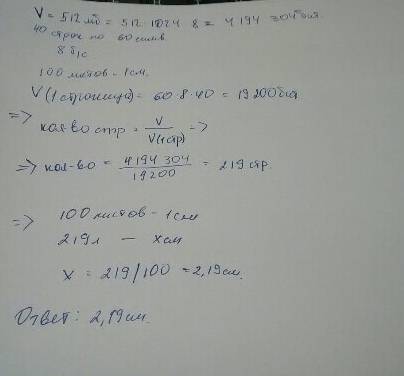 V = 512 мб = 512 · 1024 · 8 = 4 194 304 бит.
40 строк по 60 симв.
8 б/с
100 листов - 1 см.
V (1 страница) = 60 · 8 · 40 = 19 200 бит
=> кол-во стр = V / V(1 стр) =>
=> кол-во = 4 194 304 / 19200 = 219 стр.
=> 100 листов - 1 см
219 л — x см
x = 219/100 = 2,19 см.
Ответ: 2,19 см.